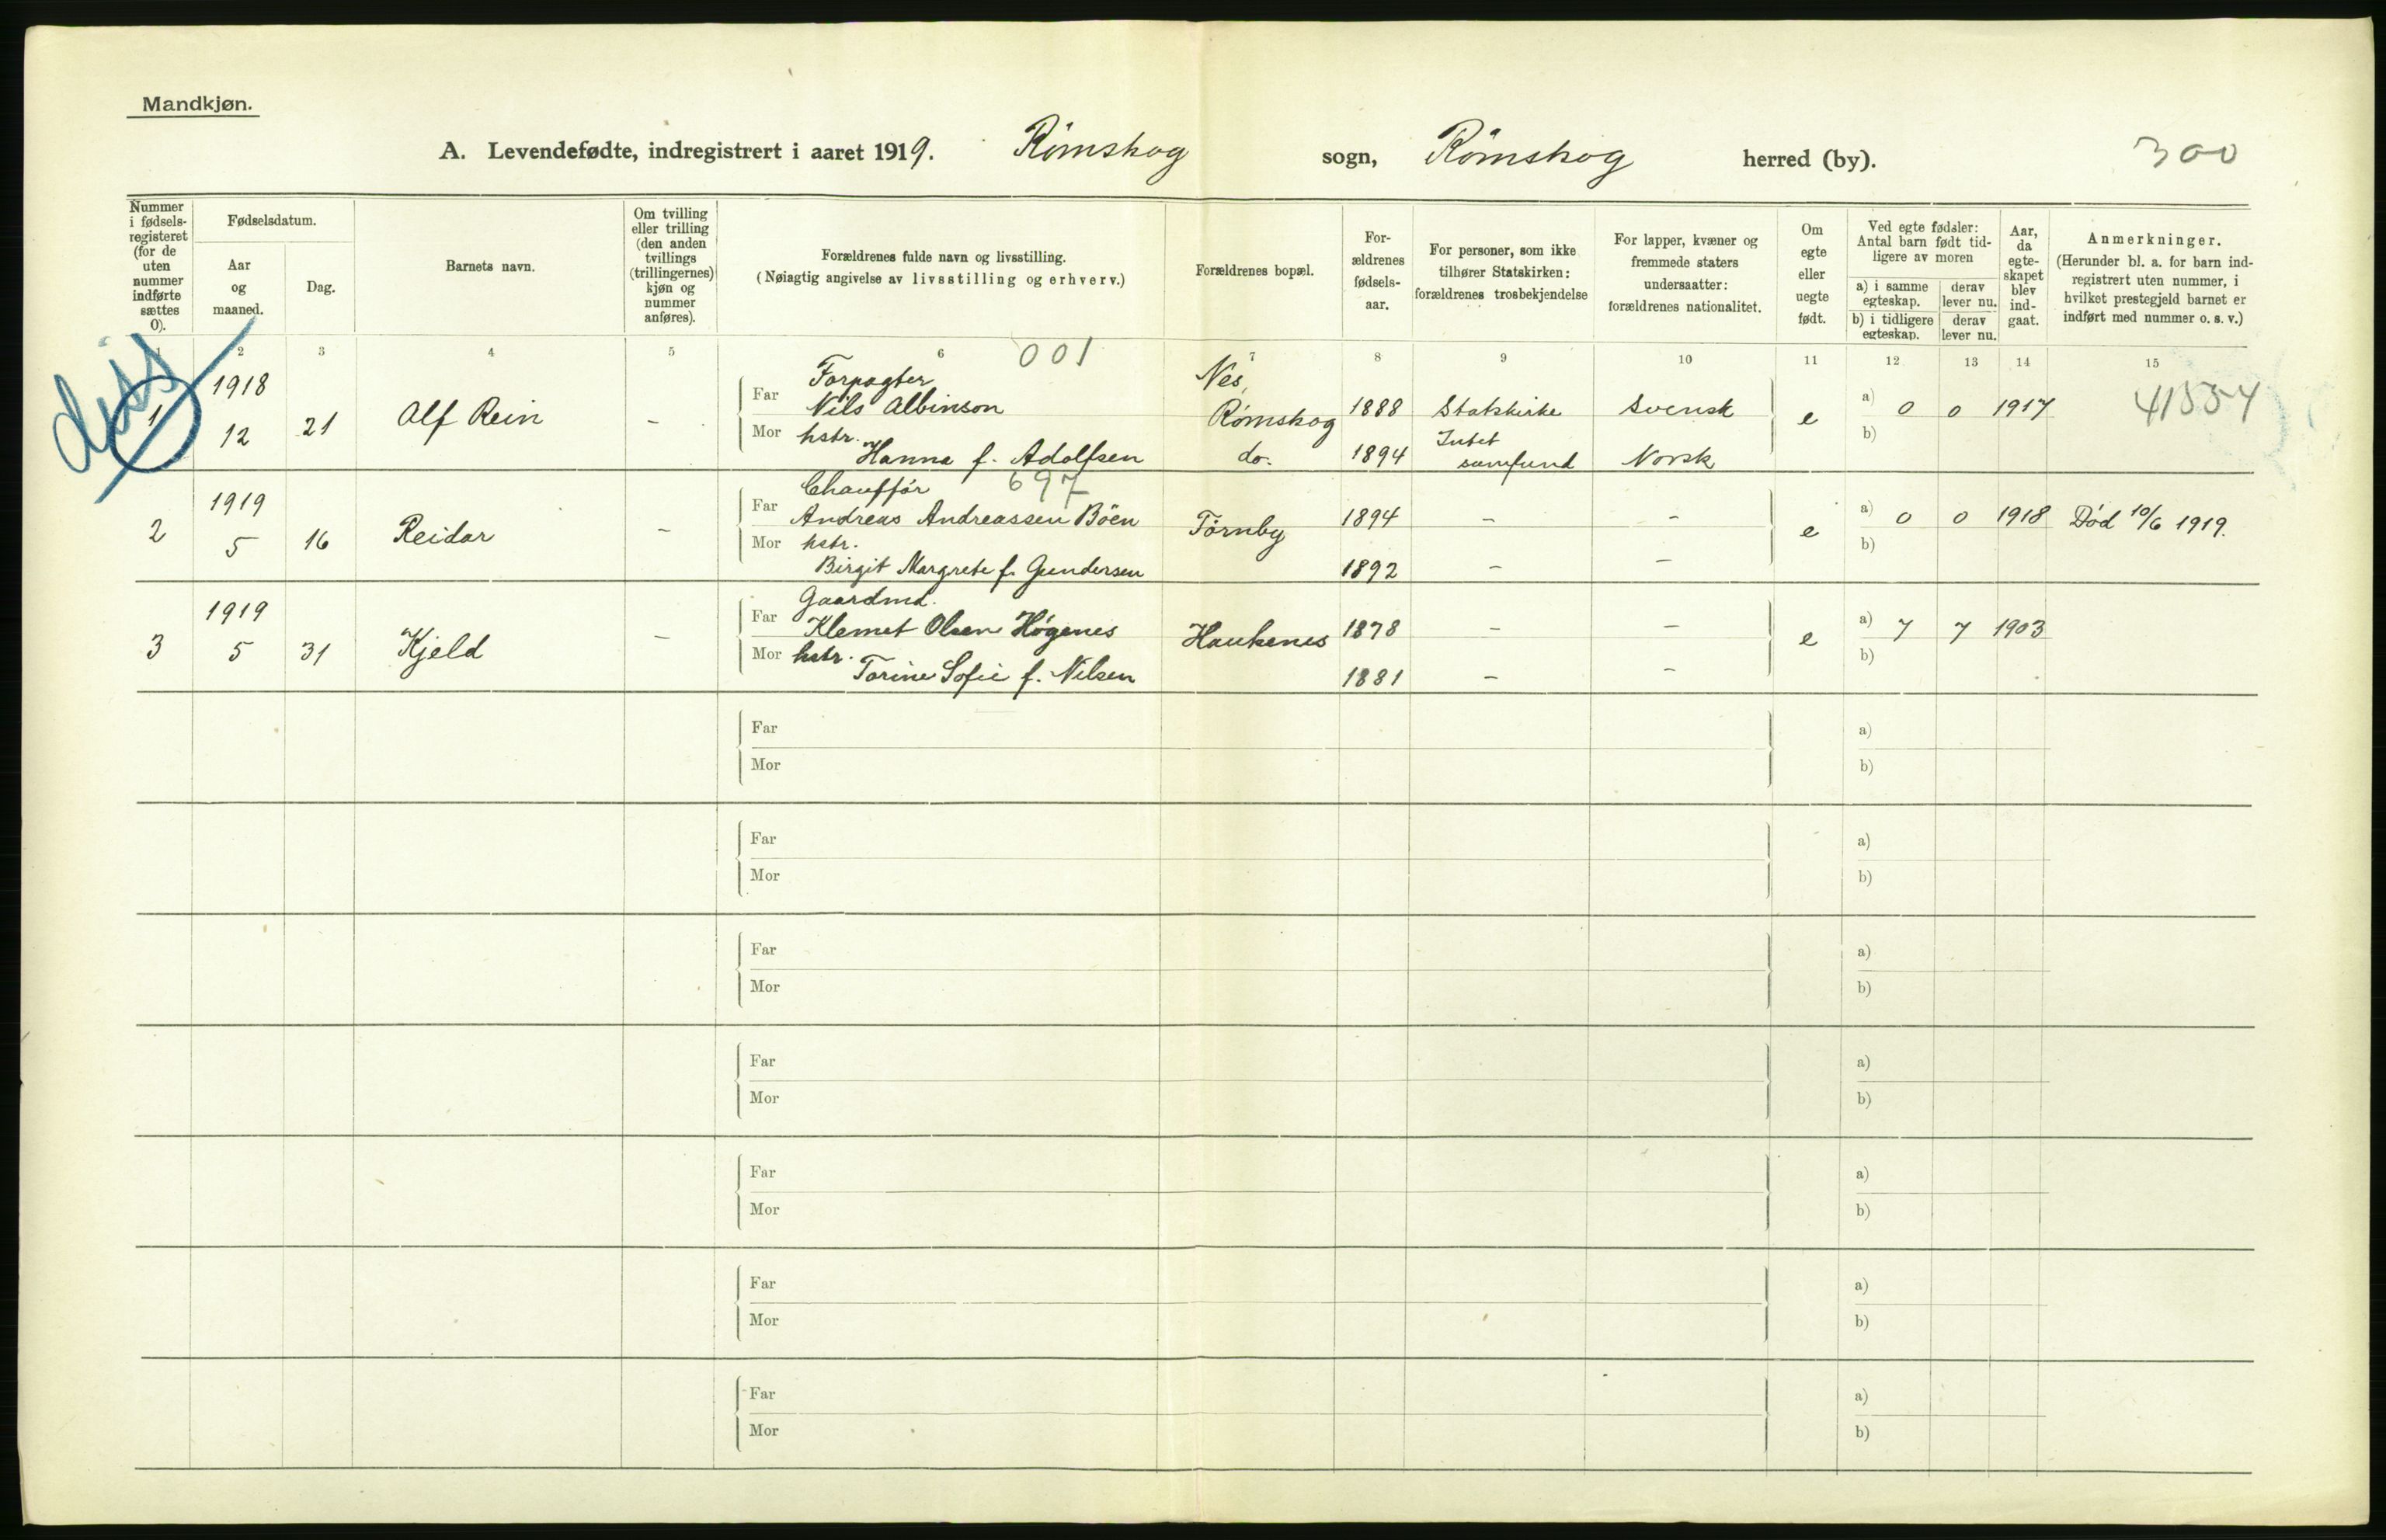 Mandkjøn.
A. Levendefødte, indregistrert i aaret 1919. Rømskog sogn, Rømskog herred (by). 300
Nummer i fødsels-registeret (for de uten nummer indførte sættes 0).
Fødselsdatum.
Aar og maaned.
Dag.
Barnets navn.
Om tvilling eller trilling (den anden tvillings (trillingernes) kjøn og nummer anføres).
Forældrenes fulde navn og livsstilling.
(Nøiagtig angivelse av livsstilling og erhverv.)
Forældrenes bopæl.
For-ældrenes fødsels-aar.
For personer, som ikke tilhører Statskirken: forældrenes trosbekjendelse
For lapper, kvæner og fremmede staters undersaatter: forældrenes nationalitet.
Om egte eller uegte født.
Ved egte fødsler: Antal barn født tid-ligere av moren
a) i samme egteskap. derav lever nu.
b) i tidligere egteskap. derav lever nu.
Aar, da egte-skapet blev ind-gaat.
Anmerkninger.
(Herunder bl. a. for barn ind-registrert uten nummer, i hvilket prestegjeld barnet er indført med nummer o. s. v.)
1 2 3 4 5 6 7 8 9 10 11 12 13 14 15
001
1 1918 12 21 Alf Rein -
Far Forpagter Nils Albinson Nes, Rømskog 1888 Statskirke Svensk e a) 0 0 1917 41554
Mor hstr. Hanna f. Adolfsen do. 1894 Intet samfund Norsk b)
697
2 1919 5 16 Reidar -
Far Chauffør Andreas Andreassen Böen Törnby 1894 - - e a) 0 0 1918 Död 10/6 1919.
Mor hstr. Birgit Margrete f. Gundersen 1892 - - b)
3 1919 5 31 Kjeld -
Far Gaardmd. Klemet Olsen Högenes Haukenes 1878 - - e a) 7 7 1903
Mor hstr. Torine Sofie f. Nilsen 1881 - - b)
Far a)
Mor b)
Far a)
Mor b)
Far a)
Mor b)
Far a)
Mor b)
Far a)
Mor b)
Far a)
Mor b)
Far a)
Mor b)